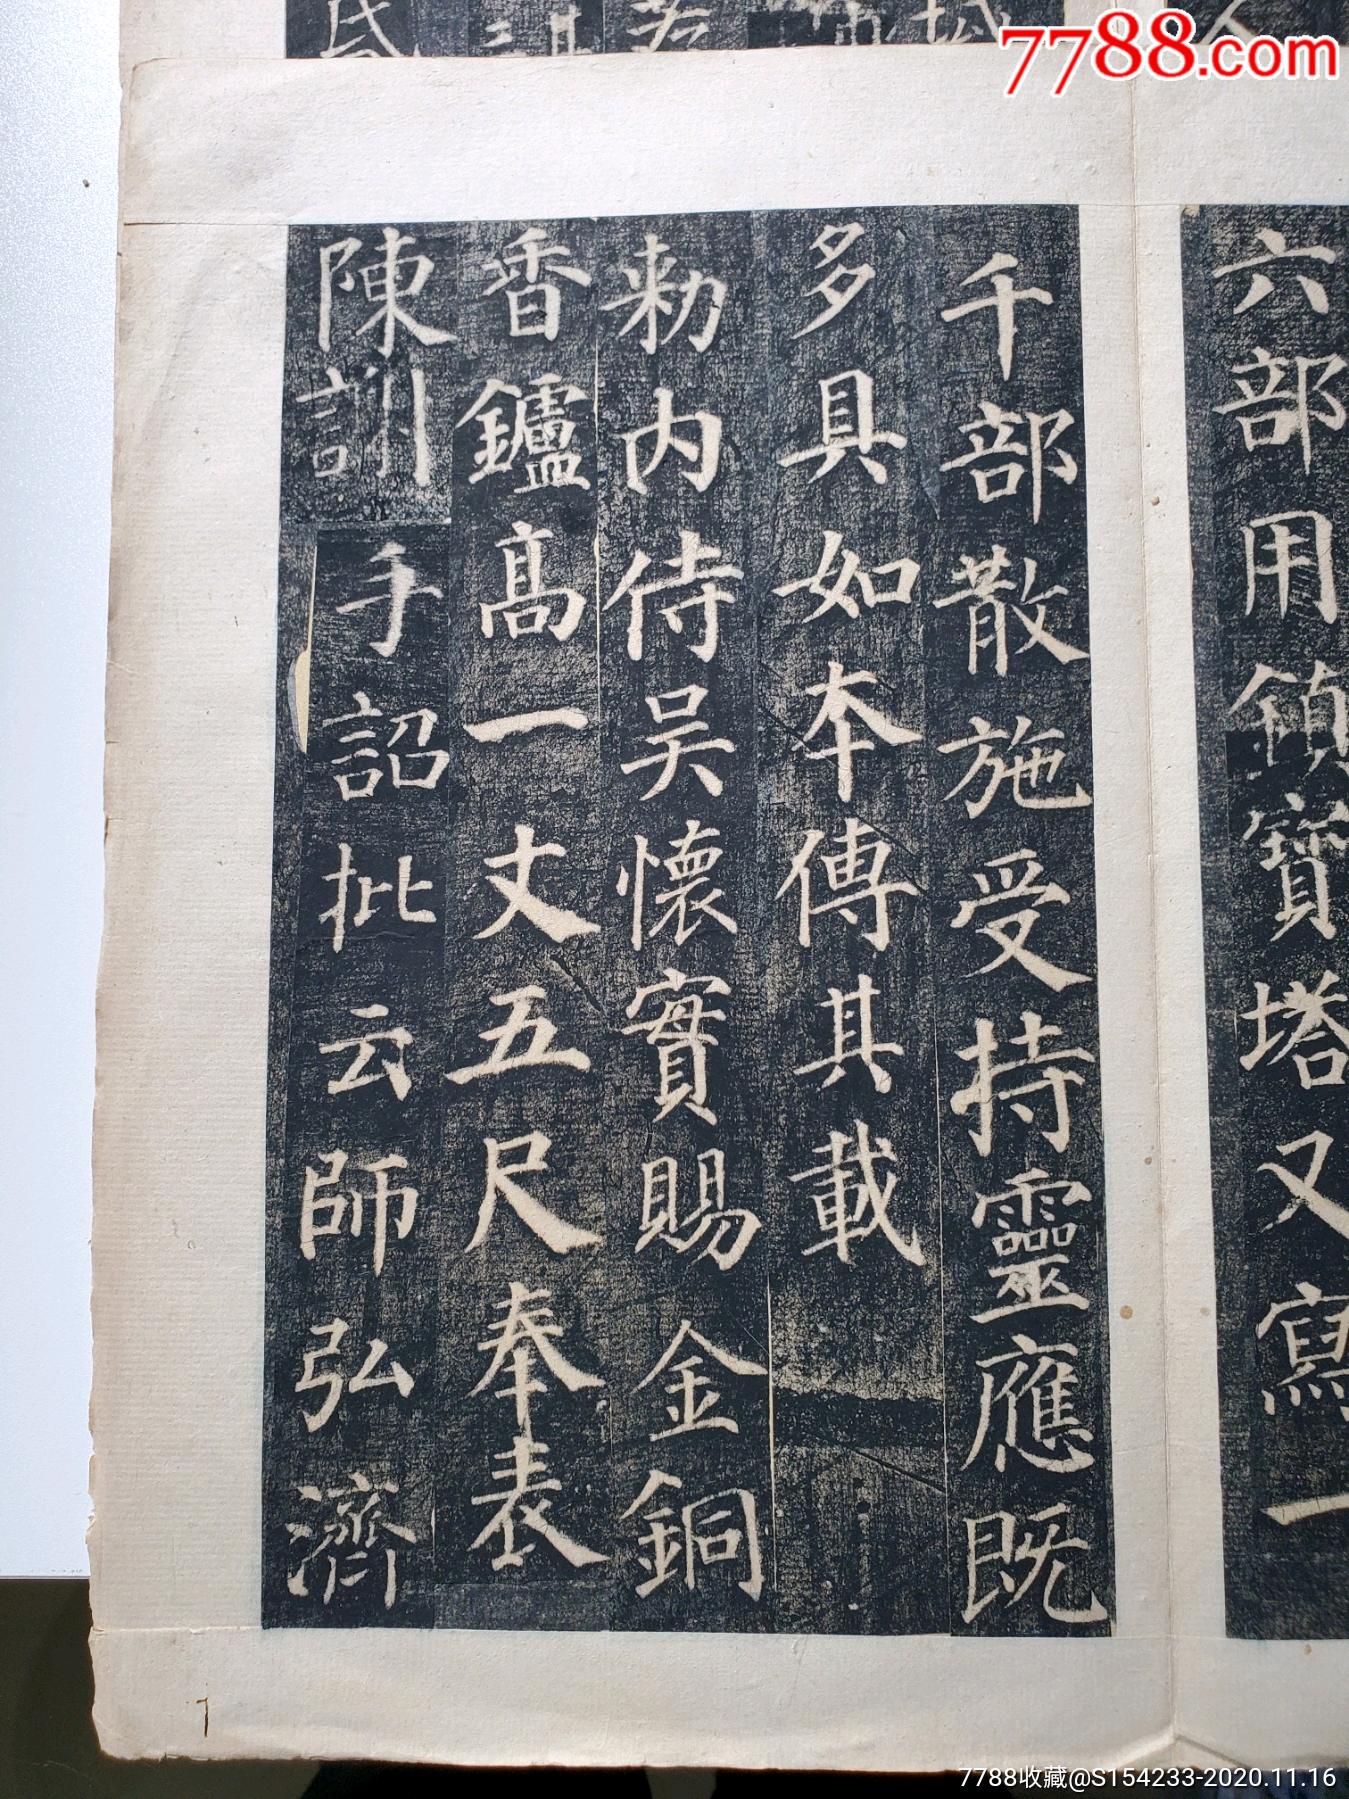 7788.com
六部用鎮寶塔又寫一
千部散施受持靈應既
多具如本傳其載
勑內侍吴懷實賜金銅
香鑪髙一丈五尺奉表
陳謝手詔批云師弘濟
7788收藏@S154233-2020.11.16